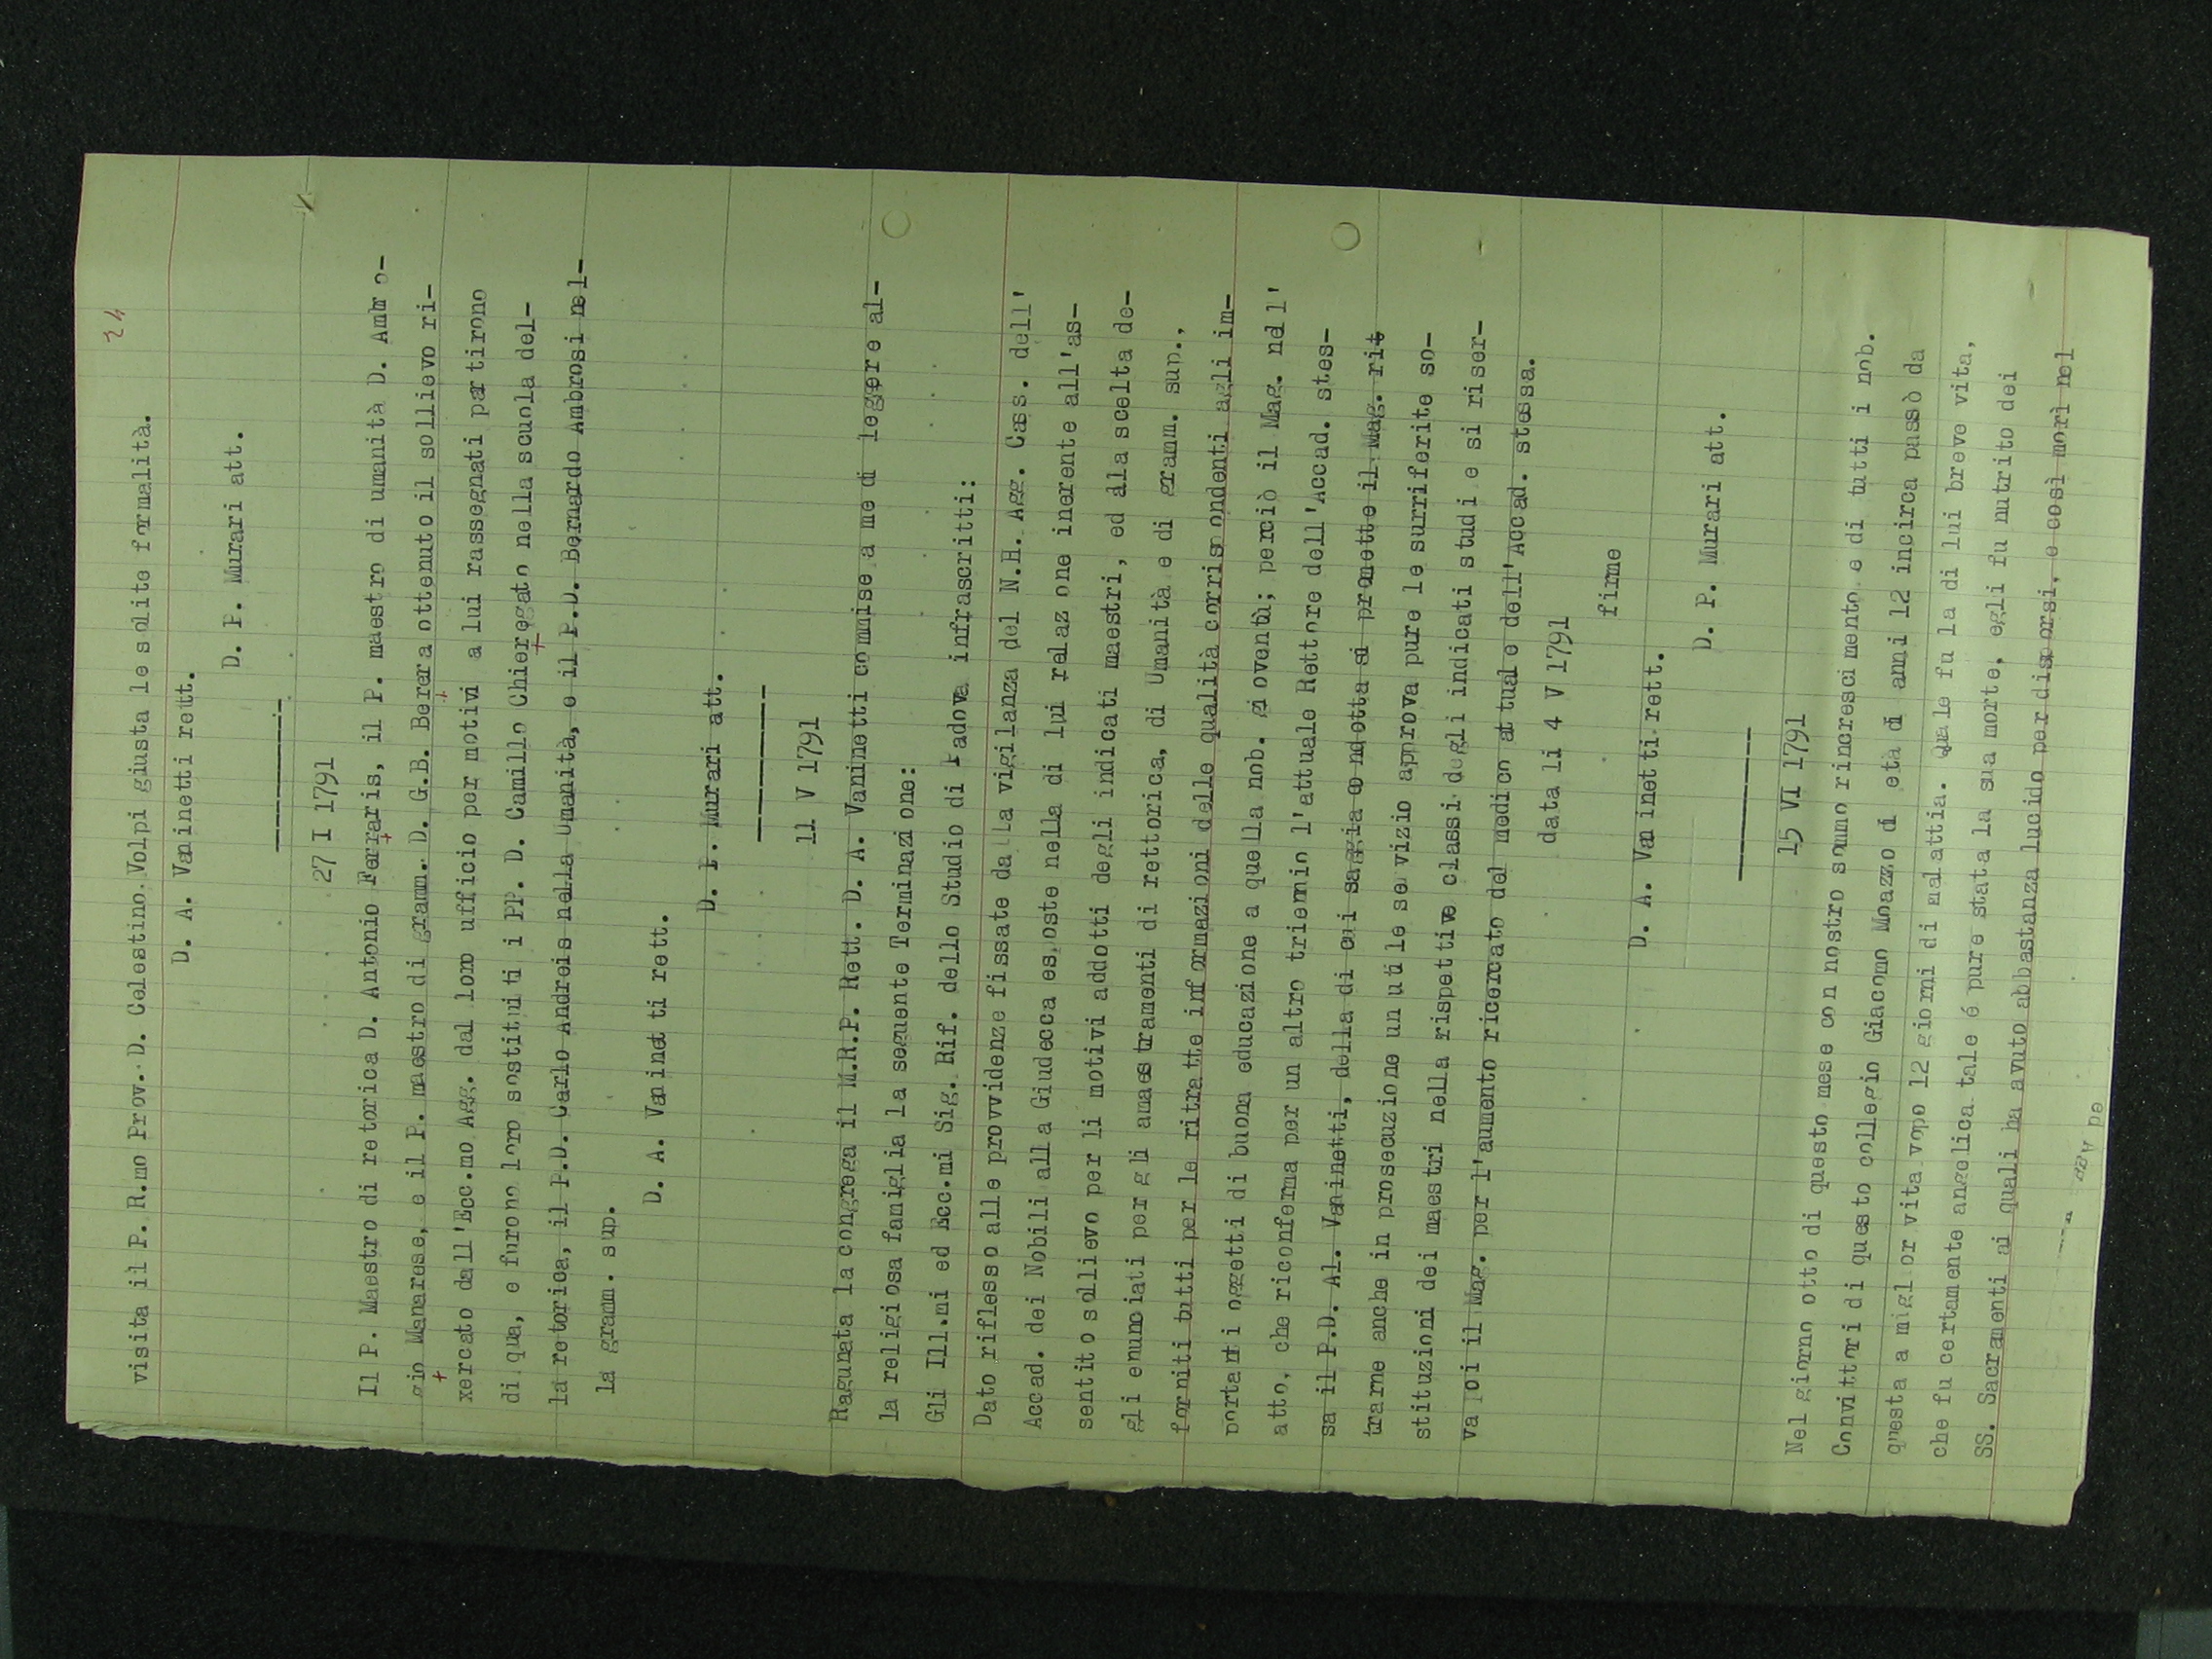 24
visita il P. R.mo Prov. D. Celestino Volpi giusta le solite formalità.
D. A. Vaninetti rett.
D. P. Murari att.
27 I 1791
Il P. Maestro di retorica D. Antonio Ferraris, il P. maestro di umanità D. Ambro-
gio Manarese, e il P. maestro di gramm. D. G.B. Berera ottenuto il sollievo ri-
xercato dall'Ecc.mo Agg. dal loro ufficio per motivi a lui rassegnati partirono
di qua, e furono loro sostituiti i PP. D. Camillo Chieregato nella scuola del-
la retorica, il P.D. Carlo Andreis nella Umanità, e il P.D. Bernardo Ambrosi nel-
la gramm. sup.
D. A. Vaninetti rett.
D. P. Murari att.
11 V 1791
Ragunata la congrega il M.R.P. Rett. D. A. Vaninetti commise a me di leggere al-
la religiosa famiglia la seguente Terminazione:
Gli Ill.mi ed Ecc.mi Sig. Rif. dello Studio di Padova infrascritti:
Dato riflesso alle provvidenze fissate dalla vigilanza del N.H. Agg. Cass. dell'
Accad. dei Nobili alla Giudecca esposte nella di lui relazione inerente all'as-
sentito sollievo per li motivi addotti degli indicati maestri, ed alla scelta de-
gli enunciati per gli amaestramenti di rettorica, di Umanità e di gramm. sup.,
forniti tutti per le ritratte informazioni delle qualità corrispondenti agli im-
portanti oggetti di buona educazione a quella nob. gioventù; perciò il Mag. nell'
atto, che riconferma per un altro triennio l'attuale Rettore dell'Accad. stes-
sa il P.D. Al. Vaninetti, della di cui saggia condotta si promette il Mag. rit
trarne anche in prosecuzione un utile servizio approva pure le surriferite so-
stituzioni dei maestri nella rispettive classi degli indicati studi e si riser-
va poi il Mag. per l'aumento ricercato del medico attuale dell'Accad. stessa.
data li 4 V 1791
firme
D. A. Vaninetti rett.
D. P. Murari att.
15 VI 1791
Nel giorno otto di questo mese con nostro sommo rincrescimento e di tutti i nob.
Convittori di questo collegio Giacomo Moazzo di età di anni 12 incirca passò da
questa a miglor vita vopo 12 giorni di malattia. Quale fu la di lui breve vita,
che fu certamente angelica tale é pure stata la sua morte, egli fu nutrito dei
SS. Sacramenti ai quali ha avuto abbastanza lucido per disporsi, e così morì nel